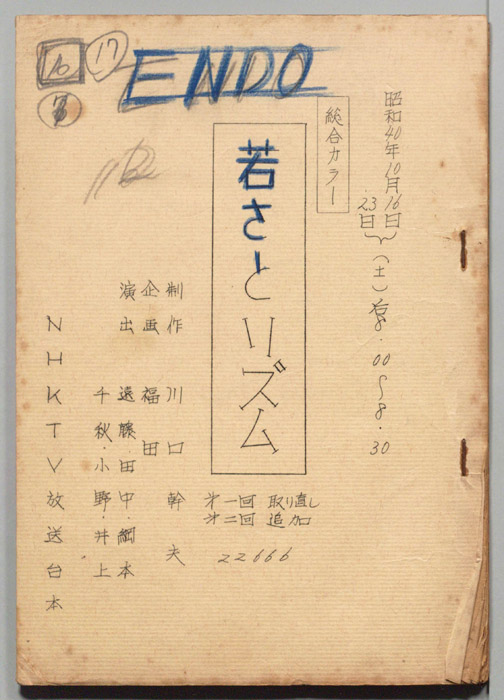 10
17
ENDO
昭和40年10月16日
23日
(土)后8.00〜8.30
総合カラー
若さとリズム
第一回 取り直し
第二回 追加
22666
制作 川口幹夫
企画 福田
演出 遠藤・田中・綱本
千秋・小野・井上
NHKTV放送台本